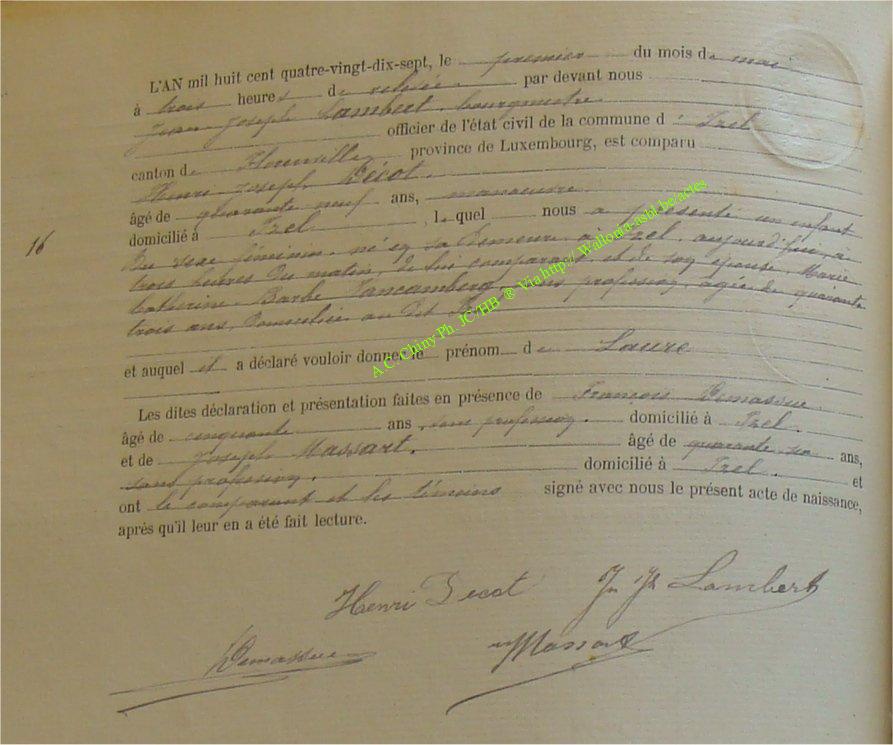 L'AN mil huit cent quatre-vingt-dix-sept, le premier du mois de mai
à trois heures de relevée par devant nous
Jean-Joseph Lambert, bourgmestre
officier de l'état civil de la commune d'Izel
canton de Florenville province de Luxembourg, est comparu
Henri Joseph Bécot.
âgé de quarante neuf ans, manoeuvre
domicilié à Izel, le quel nous a présenté un enfant
16
du sexe féminin, né en sa demeure à Izel, aujourd'hui, à
trois heures du matin, de lui comparant et de son épouse, Marie
Catherine Barbe Vancamberg, sans profession, agée de quarante
trois ans, domiciliée au dit
et auquel il a déclaré vouloir donner le prénom de Laure
Les dites déclaration et présentation faites en présence de François Demassue
âgé de cinquante ans, sans profession. domicilié à Izel.
et de Joseph Massart. âgé de quarante six ans,
sans profession. domicilié à Izel. et
ont le comparant et les témoins signé avec nous le présent acte de naissance,
après qu'il leur en a été fait lecture.
A.C. Chiny Ph. JC/HB ® Via http://Wallonia-asbl.be/actes
Henri Becot Jn Jh Lambert
Demassue Massart